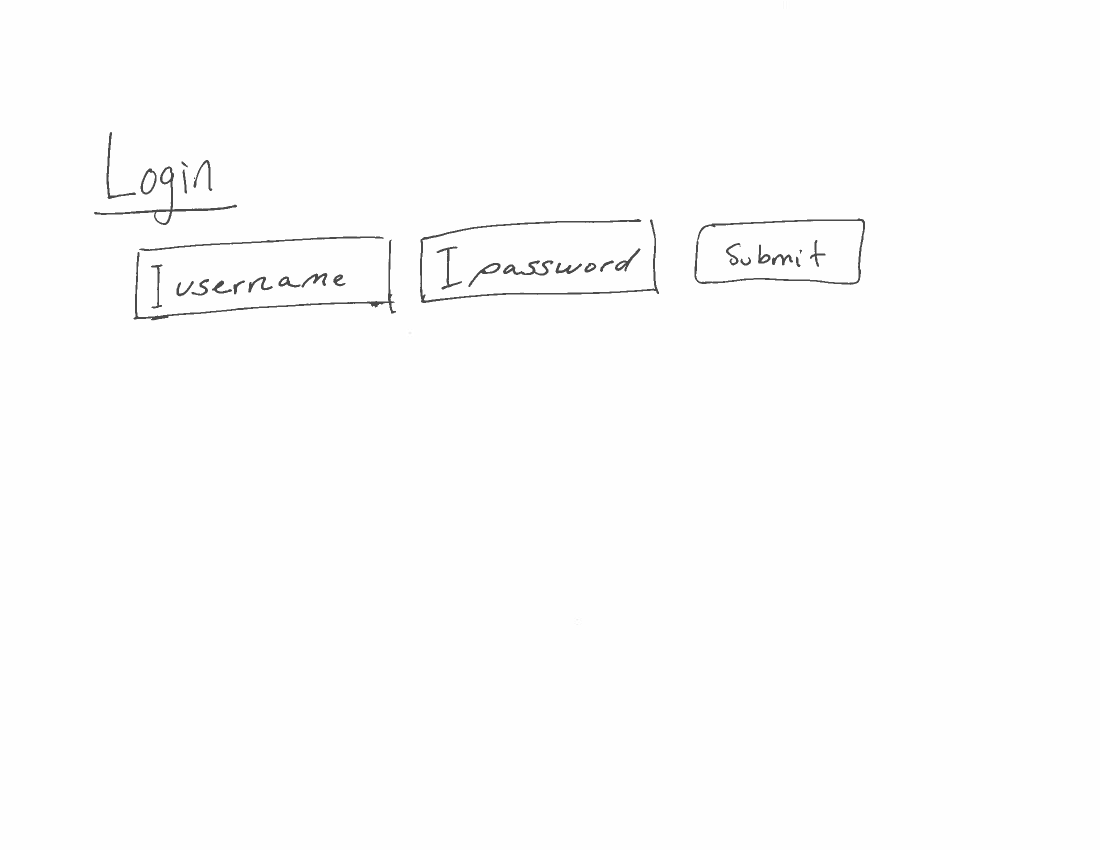 Login
username
password
Submit